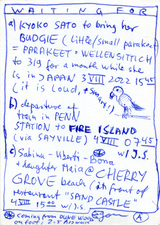 WAITING FOR
a) KYOKO SATO to bring her
BUDGIE (little/small parakeet
= PARAKEET = WELLENSITTICH
to 319 for a month while she
is in JAPAN 3 VIII 2022 15 45
(it is loud,
b) departure of
train in PENN
STATION to FIRE ISLAND
(via SAYVILLE) 4 VIII 07 45
c) Sabine w/ J.S.
& daughter Meia @ CHERRY
GROVE beach (in front of
restaurant "SAND CASTLE"
4 VIII 15 w/ J.S.
Coming from
on foot
A